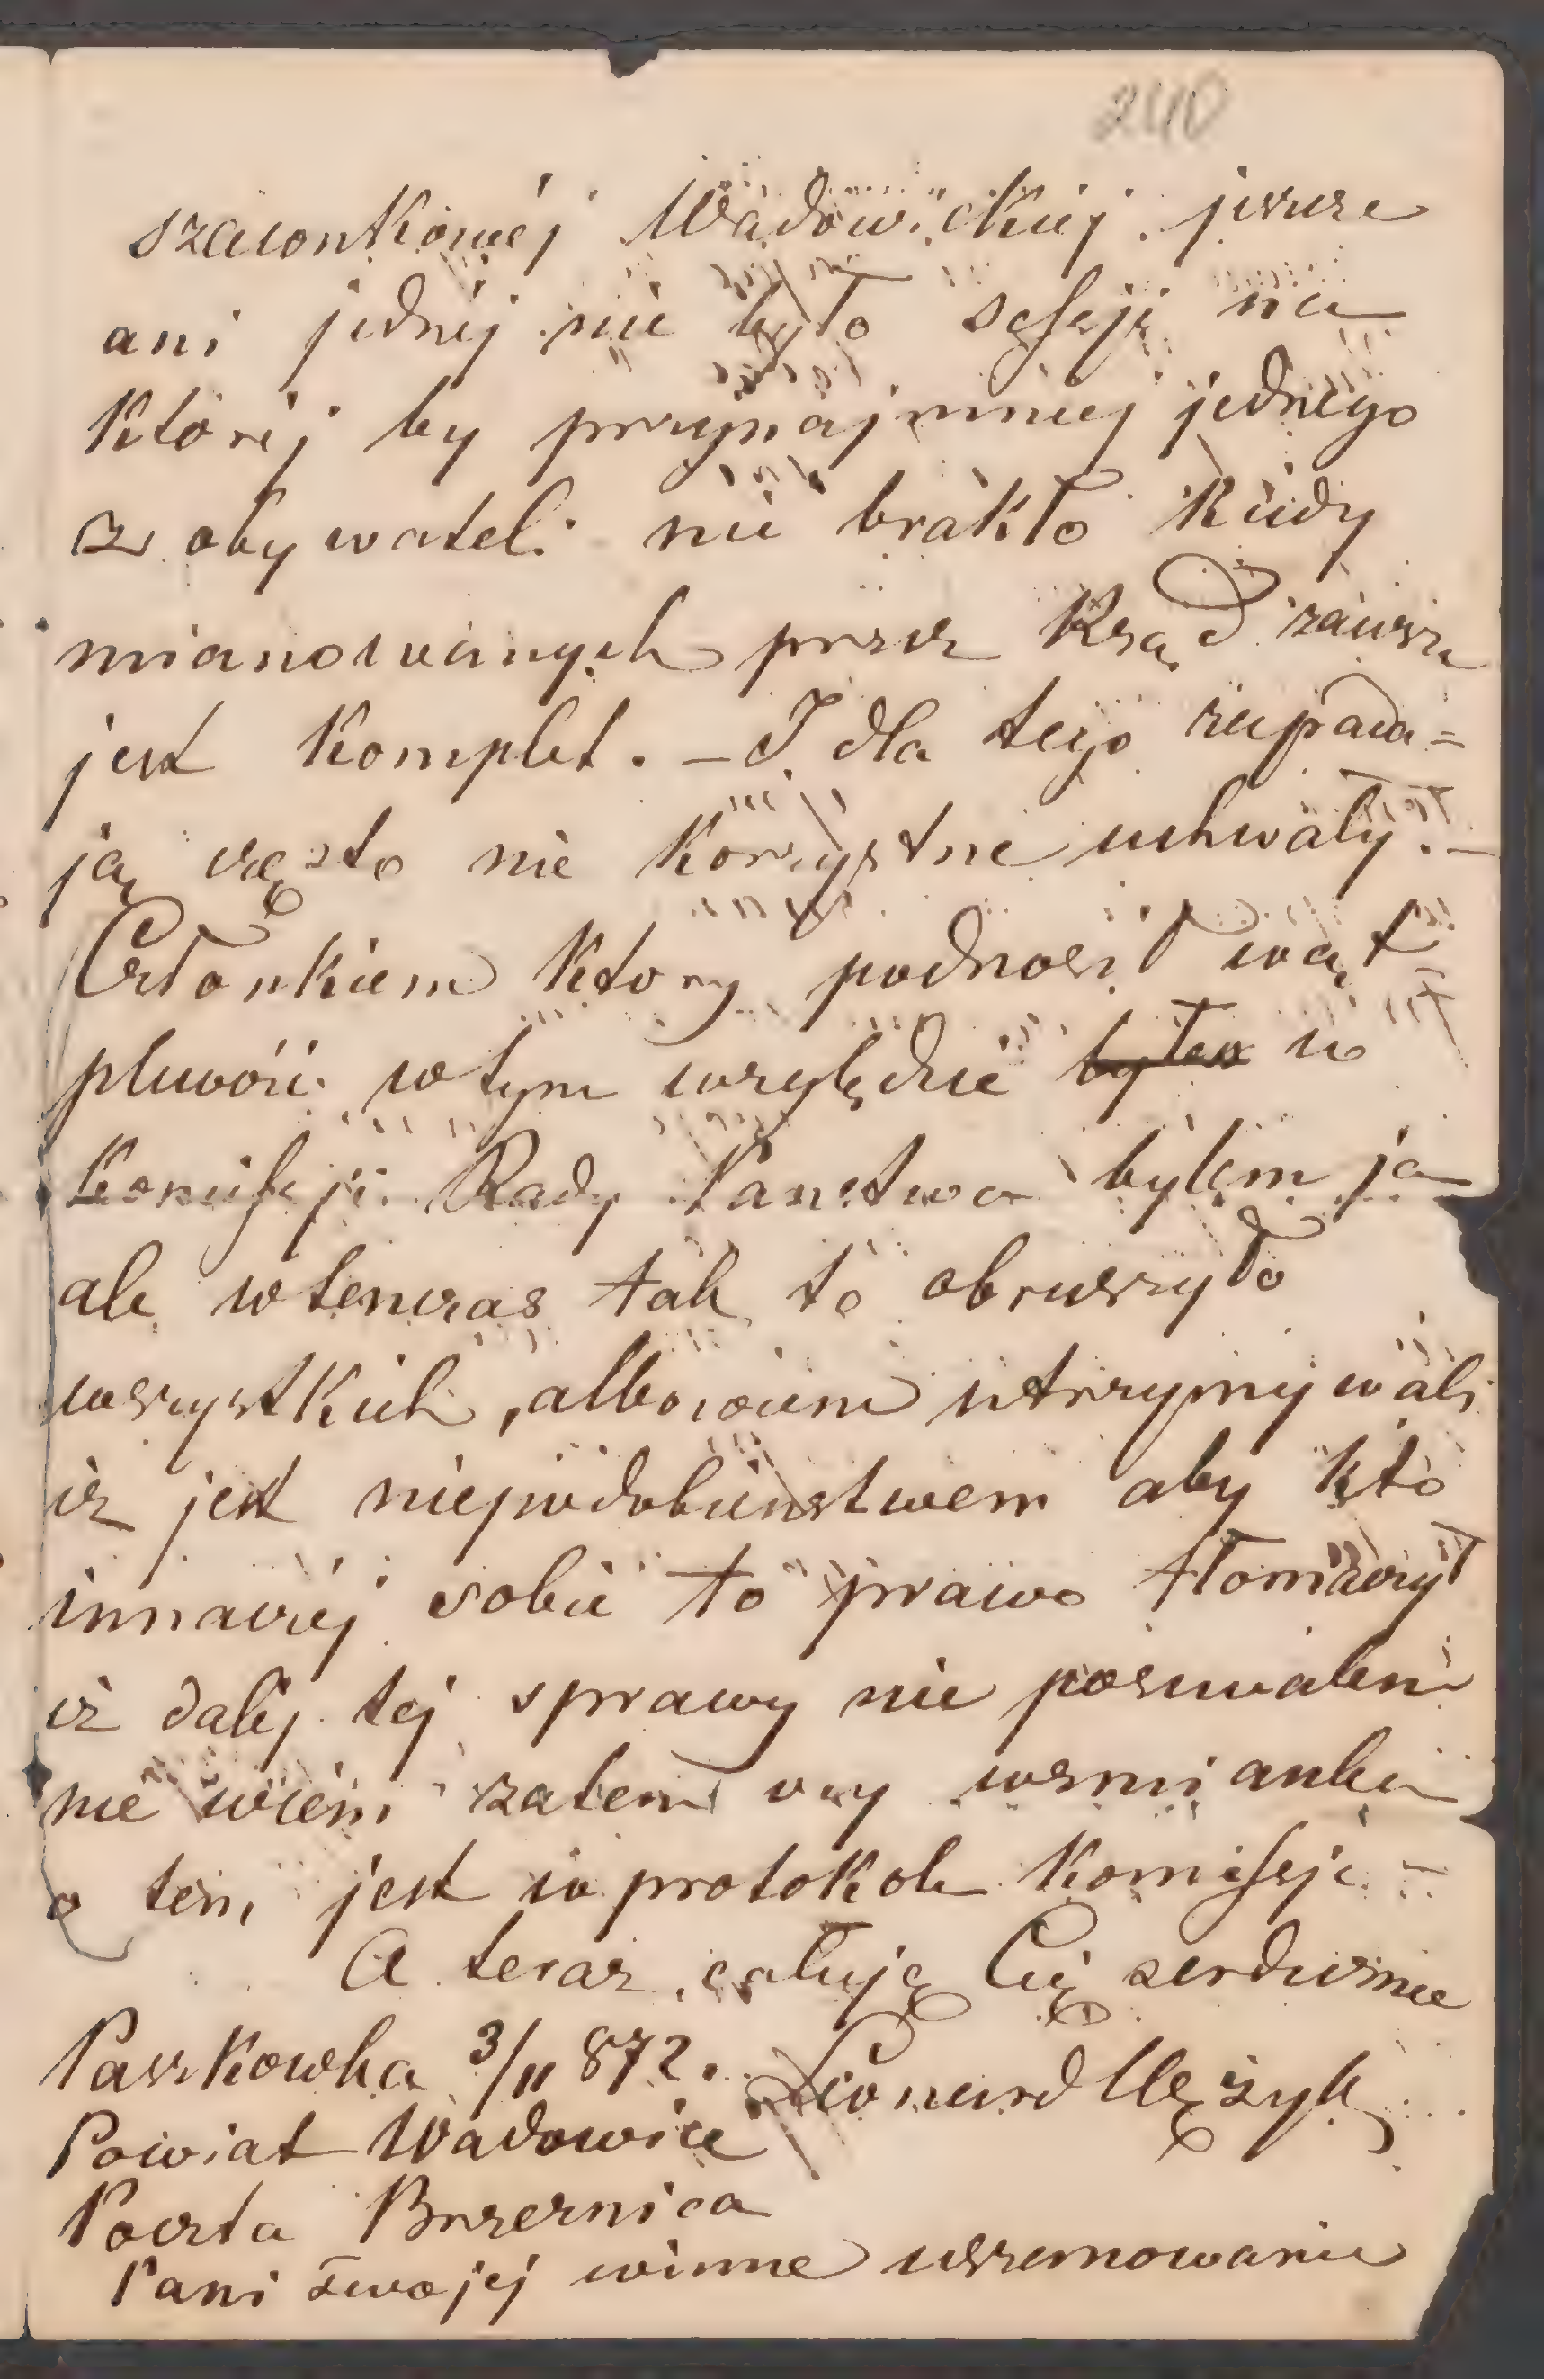 240
szacunkowéj Wadowickiej jeszcze
ani jednéj nie było sessji na
któréj by przynajmniej jednego
z obywateli nie brakło kiedy
mianowanych przez Rząd zawsze
jest komplet. – I dla tego zapada=
ją często nie korzystne uchwały. –
Członkiem ktory podnosił wąt=
pliwość w tym względzie byłem w
Komissji Rady Panstwa byłem ja
ale wtenczas tak to obruszyło
wszystkich, albowiem utrzymywali
iz jest niepodobieństwem aby kto
innaczéj sobie to prawo tłomaczył
iż daléj tej sprawy nie posuwałem
nie wiem zatem czy wzmianka
o tem jest w protokole Komissji –
A teraz całuję Cię serdecznie
Paszkowka 3/11 872. Leonard Wężyk
Powiat Wadowice
Poczta Brzeznica
Pani Twojej winne uszanowanie